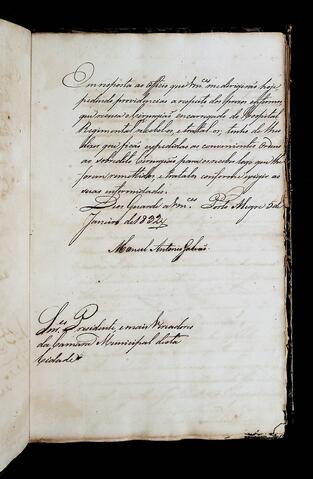 Em resposta ao Officio que Vm.ces me dirigirão hoje
pedindo providencias a respeito dos presos enfermos,
que recusa o Cirurgião encarregado do Hospital
Regimental recebelos, e tratal-os, tenho de lhes
dizer que ficão expedidas as convenientes Ordens
ao sobredito Cirurgião para os receber logo que lhe
forem remettidos, e tratalos conforme exigir as
suas enfermidades.
Deos Guarde a Vm.ces Porto Alegre 3 de
Janeiro de 1832
Manoel Antonio Galvão
Snr.es Presidente, e mais Vereadores
da Camara Municipal desta
Cidade